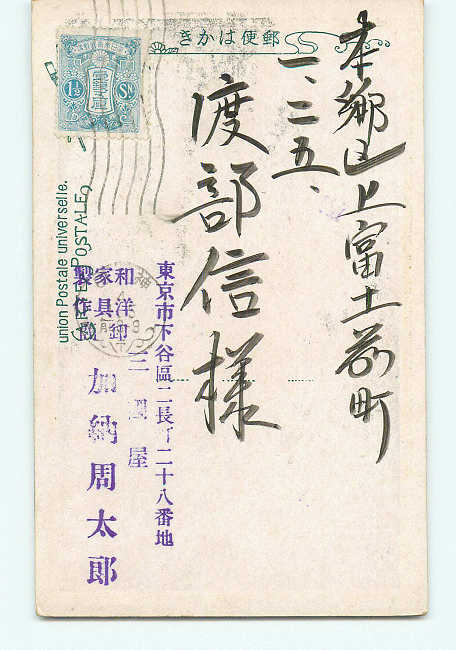 きかは便郵
本郷区上富士前町
一、二五、
渡部信様
1½ Sn
union Postale universelle.
CARTE POSTALE
東京市下谷區二長町二十八番地
和洋
家具
製作
屋
加納周太郎